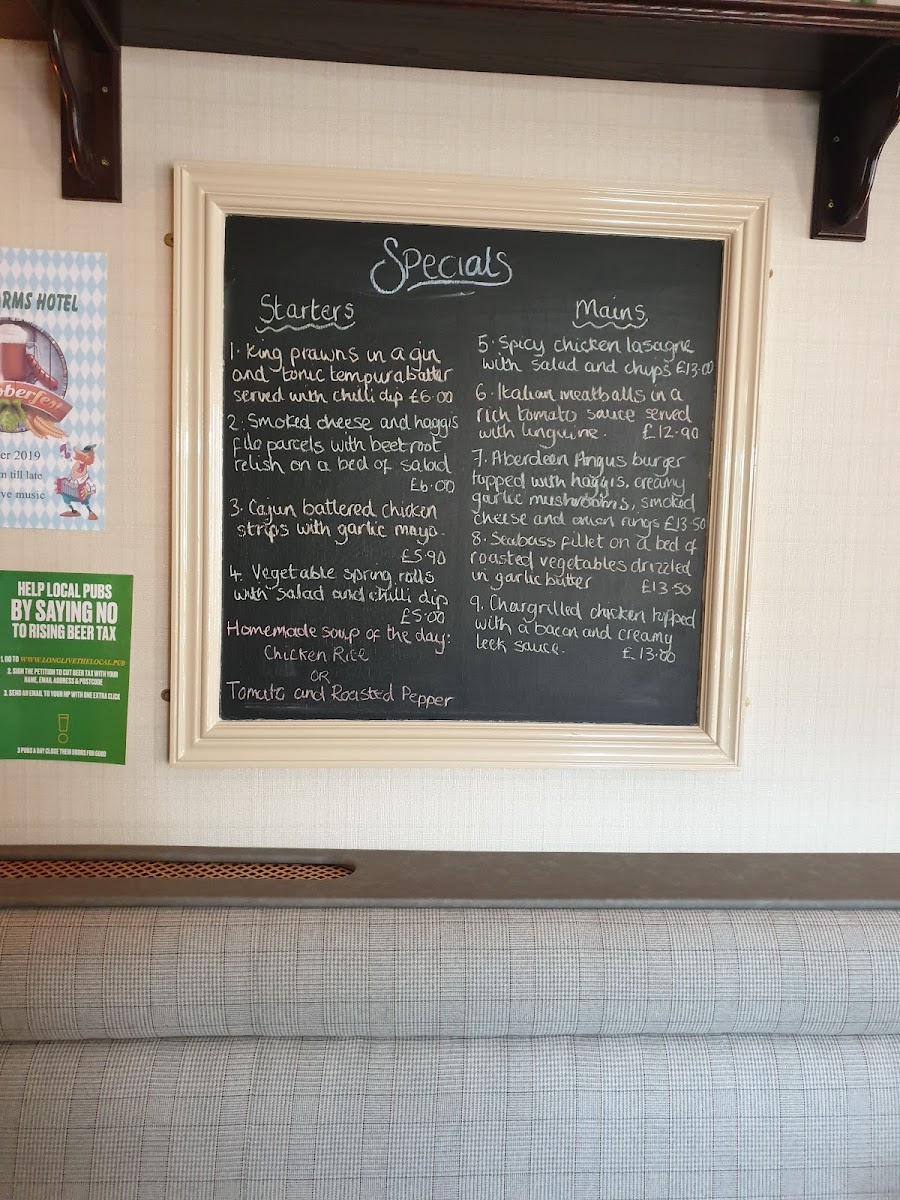 Specials
Starters
1. King prawns in a gin
and tonic tempura batter
served with chilli dip £6.00
2. Smoked cheese and haggis
filo parcels with beetroot
relish on a bed of salad
£6.00
3. Cajun battered chicken
strips with garlic mayo.
£5.90
4. Vegetable spring rolls
with salad and chilli dip
£5.00
Homemade soup of the day:
Chicken Rice
OR
Tomato and Roasted Pepper
Mains
5. Spicy chicken lasagne
with salad and chips £13.00
6. Italian meatballs in a
rich tomato sauce served
with linguine. £12.90
7. Aberdeen Angus burger
topped with haggis, creamy
garlic mushrooms, smoked
cheese and onion rings £13.50
8. Seabass fillet on a bed of
roasted vegetables drizzled
in garlic butter £13.50
9. Chargrilled chicken topped
with a bacon and creamy
leek sauce. £13.00
RMS HOTEL
oberfest
er 2019
m till late
ve music
HELP LOCAL PUBS
BY SAYING NO
TO RISING BEER TAX
1. GO TO WWW.LONGLIVETHELOCAL.PUB
2. SIGN THE PETITION TO CUT BEER TAX WITH YOUR
NAME, EMAIL ADDRESS & POSTCODE
3. SEND AN EMAIL TO YOUR MP WITH ONE EXTRA CLICK
3 PUBS A DAY CLOSE THEIR DOORS FOR GOOD